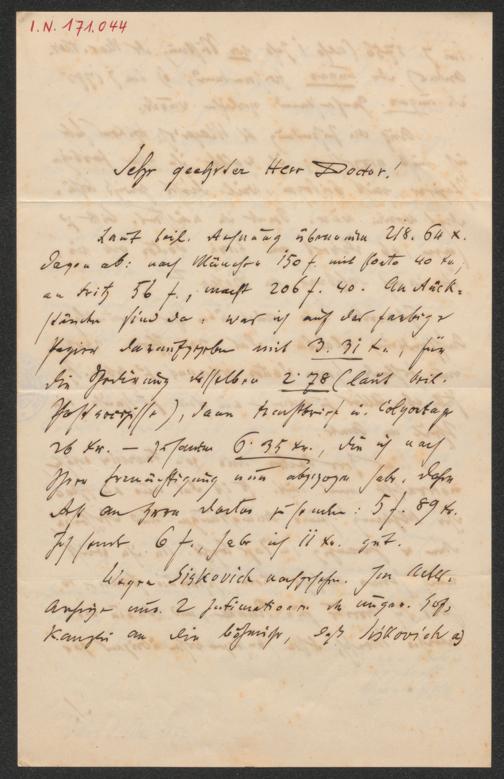 I.N. 171.044
Sehr geehrter Herr Doctor!
Laut beil. Rechnung übernommen 218. 64 x.
Davon ab: nach München 150 f. mit Porto 40 xr.,
an Fritz 56 f., macht 206 f. 40. An Rück-
stände sind da: was ich auf das farbige
Papier daraufgegeben mit 3. 31 xr., für
die Spedirung desselben 2. 78 (laut beil.
), dann u.
26 xr. – zusammen 6. 35 xr., die ich nach
Ihrer Ermächtigung nun abgezogen habe. Daher
Rest an Herrn Doctor zu senden: 5 f. 89 xr.
Ich sende 6 f., habe ich 11 xr. gut.
Wegen Siskovich nachgesehen. Im Adels-
2 Intimationen der ungar. Hof-
kanzlei an die böhmische, daß Siskovich